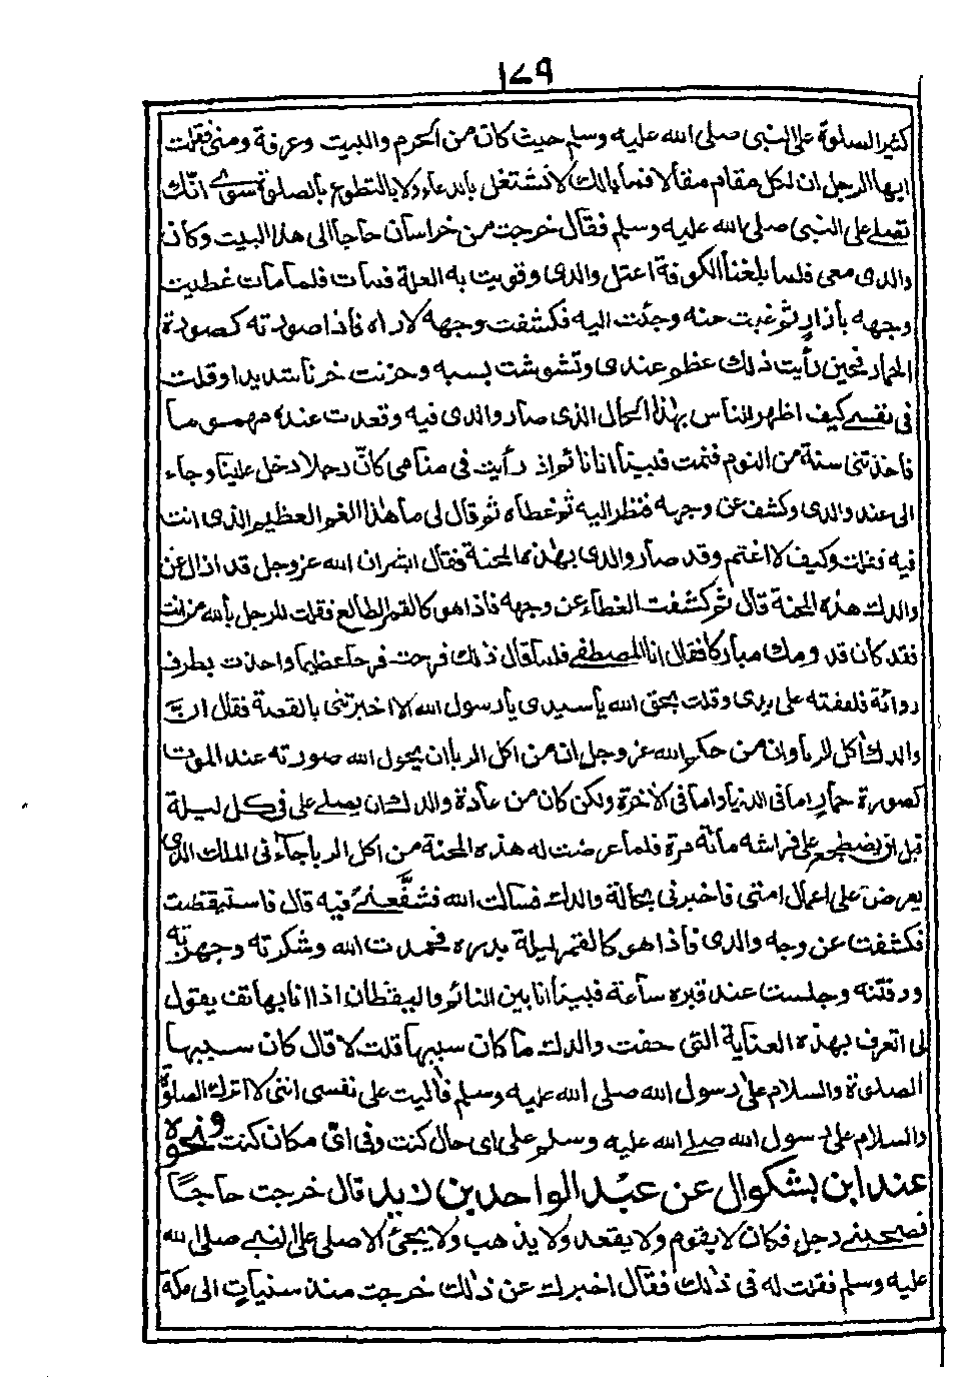 ١٧٩
كثير الصلوة على النبى صلى الله عليه وسلم حيث كان من الحرم والبيت وعرفة ومنى فقلت
ايها الرجل ان لكل مقام مقالا فما بالك لا تشتغل بالدعاء ولا بالتطوع بالصلوة سوى انك
تصلى على النبى صلى الله عليه وسلم فقال خرجت من خراسان حاجا الى هذا البيت وكان
والدى معى فلما بلغنا الكوفة اعتل والدى وقويت به العلة فمات فلما مات غطيت
وجهه بازار ثم غبت عنه وجئت اليه فكشفت وجهه لاراه فاذا صورته كصورة
الحمار فحين رأيت ذلك عظم عندى وتشوشت بسببه وحزنت حزنا شديدا وقلت
فى نفسى كيف اظهر للناس بهذا الحال الذى صار والدى فيه وقعدت عنده مهموما
فاخذتنى سنة من النوم فنمت فبينا انا نائم اذ رأيت فى منامى كانّ رجلا دخل علينا وجاء
الى عند والدى وكشف عن وجهه فنظر اليه ثم غطاه ثم قال لى ما هذا الغم العظيم الذى انت
فيه فقلت وكيف لا اغتم وقد صار والدى بهذه المحنة فقال ابشر ان الله عز وجل قد ازال عن
والدك هذه المحنة قال ثم كشفت الغطاء عن وجهه فاذا هو كالقمر الطالع فقلت للرجل بالله من انت
فقد كان قدومك مباركا فقال انا المصطفى فلما قال ذلك فرحت فرحا عظيما واخذت بطرف
ردائه فلففته على يدى وقلت بحق الله يا سيدى يا رسول الله الا اخبرتنى بالقصة فقال انّ
والدك اكل الربا وان من حكم الله عز وجل ان من اكل الربا ان يحول الله صورته عند الموت
كصورة حمار اما فى الدنيا واما فى الآخرة ولكن كان من عادة والدك ان يصلى على فى كل ليلة
قبل ان يضطجع على فراشه مائة مرة فلما عرضت له هذه المحنة من اكل الربا جاء فى الملك الذى
يعرض على اعمال امتى فاخبرنى بحالة والدك فسألت الله فشفّعنى فيه قال فاستيقظت
فكشفت عن وجه والدى فاذا هو كالقمر ليلة بدره فحمدت الله وشكرته وجهزته
ودفنته وجلست عند قبره ساعة فبينا انا بين النائم واليقظان اذا انا بهاتف يقول
لى اتعرف بهذه العناية التى حفت والدك ما كان سببها قلت لا قال كان سببها
الصلوة والسلام على رسول الله صلى الله عليه وسلم فآليت على نفسى اننى لا اترك الصلوة
والسلام على رسول الله صلى الله عليه وسلم على اى حال كنت وفى اىّ مكان كنت ونحوه
عند ابن بشكوال عن عبد الواحد بن زيد قال خرجت حاجًا
فصحبنى رجل فكان لا يقوم ولا يقعد ولا يذهب ولا يجئ الا صلى على النبى صلى الله
عليه وسلم فقلت له فى ذلك فقال اخبرك عن ذلك خرجت منذ سنيات الى مكة